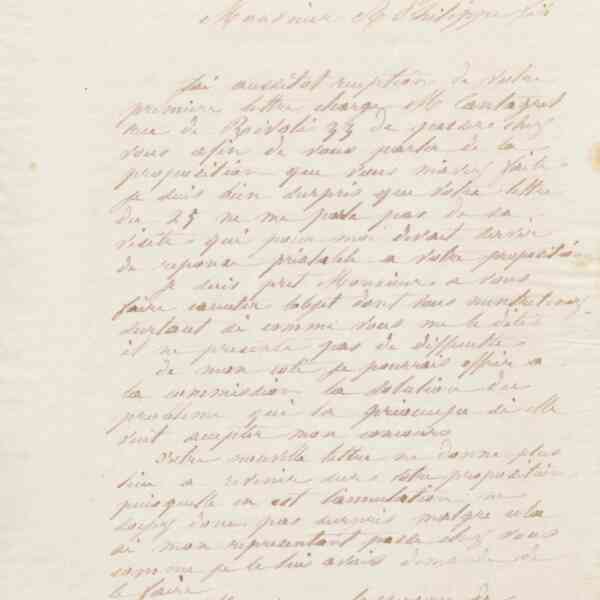 Monsieur R Philippe fils
J'ai aussitot reception de votre
premiere lettre chargé Mr Cantagrel
rue de Rivoli 33 de passer chez
vous afin de vous parler de la
proposition que vous m'avez faite.
Je suis bien surpris que votre lettre
du 25 ne me parle pas de sa
visite. qui pour moi devait servir
de reponse préalable a votre proposition
Je suis pret Monsieur a vous
faire executer l'objet dont vous m'entretenez
surtout si comme vous me le dites
il ne presente pas de difficultés.
de mon coté je pourrais offrir a
la commission la solution du
probleme qui la préoccupe si elle
veut accepter mon concours
Votre nouvelle lettre ne donne plus
lieu a revenir sur votre proposition
puisqu'elle en est l'annulation ne
soyez donc pas surpris malgré cela
si mon representant passe chez vous
comme je le lui avais demandé de
le faire